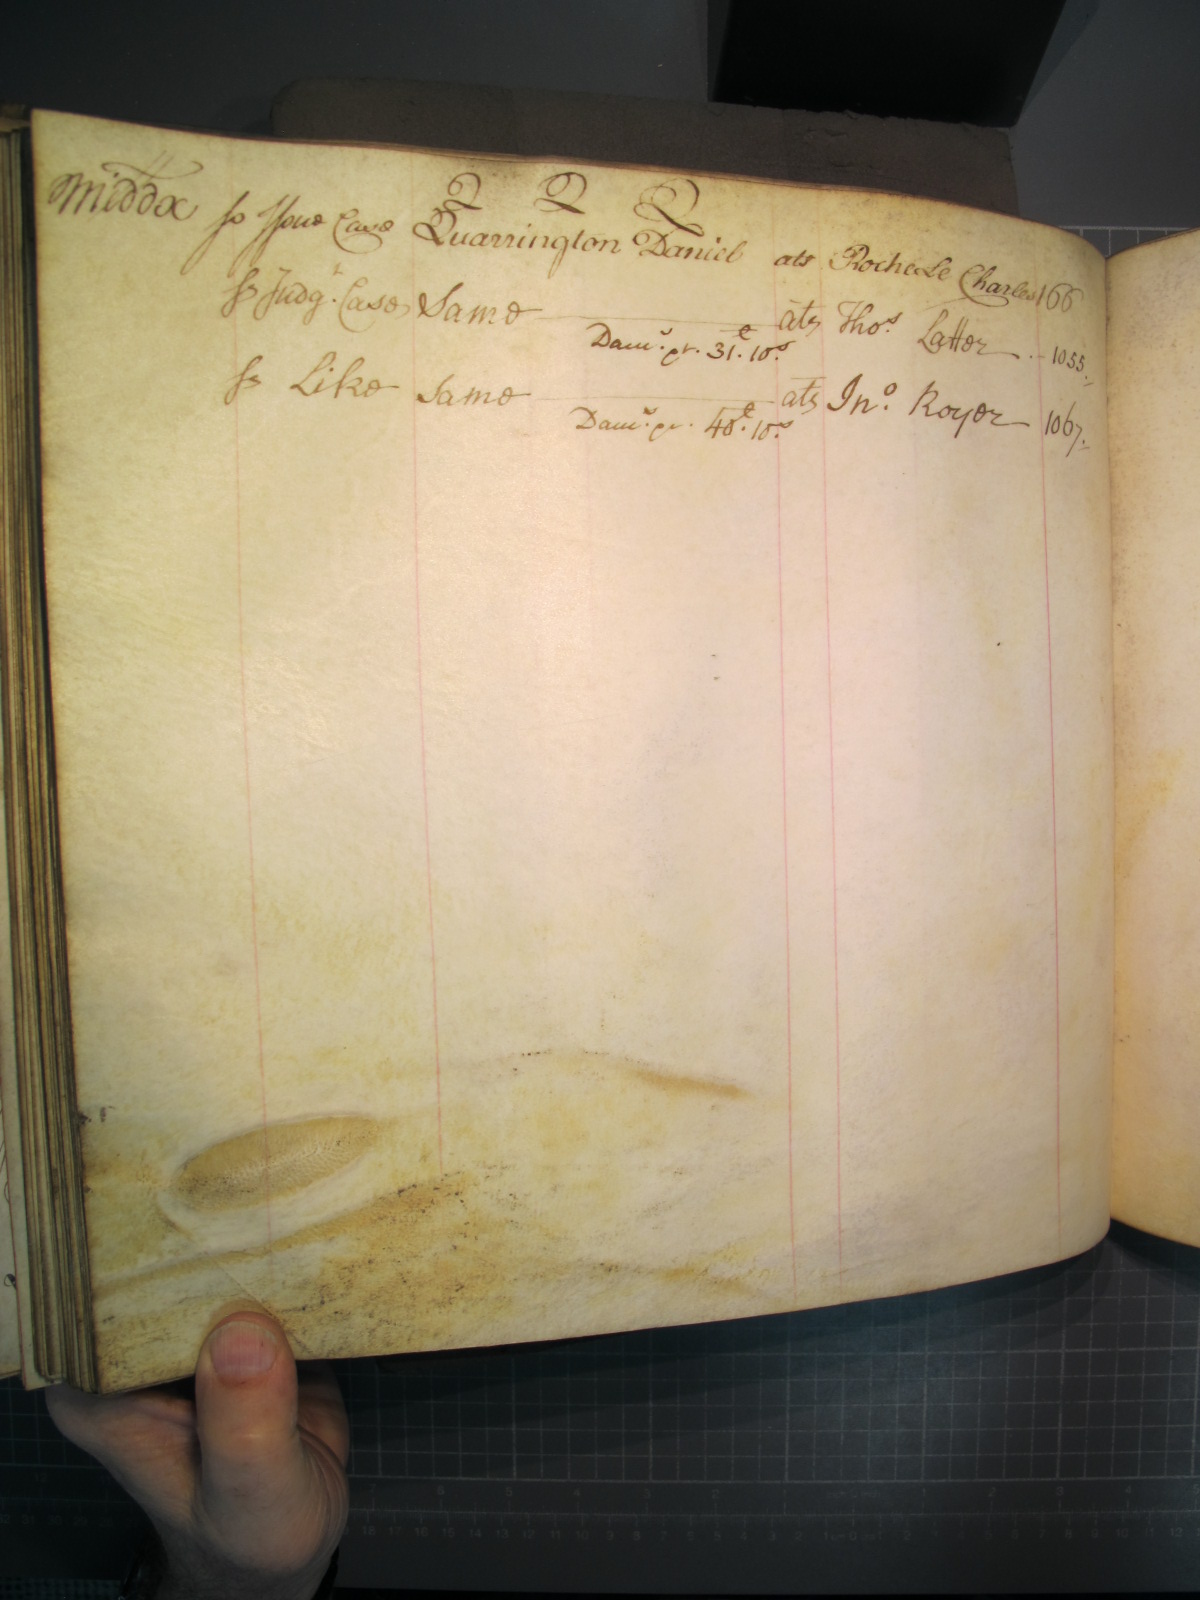 Q Q Q
Middx Jo Ypue Case Quarrington Daniel ats Rochelle Charles 166
Jo Judg.t Case Same ats Tho.s Latter 1055.
Dam.s pr. 31.£ 10.s
Jo Like Same ats Jn.o Royer 1067.
Dam.s pr. 48.£ 10.s